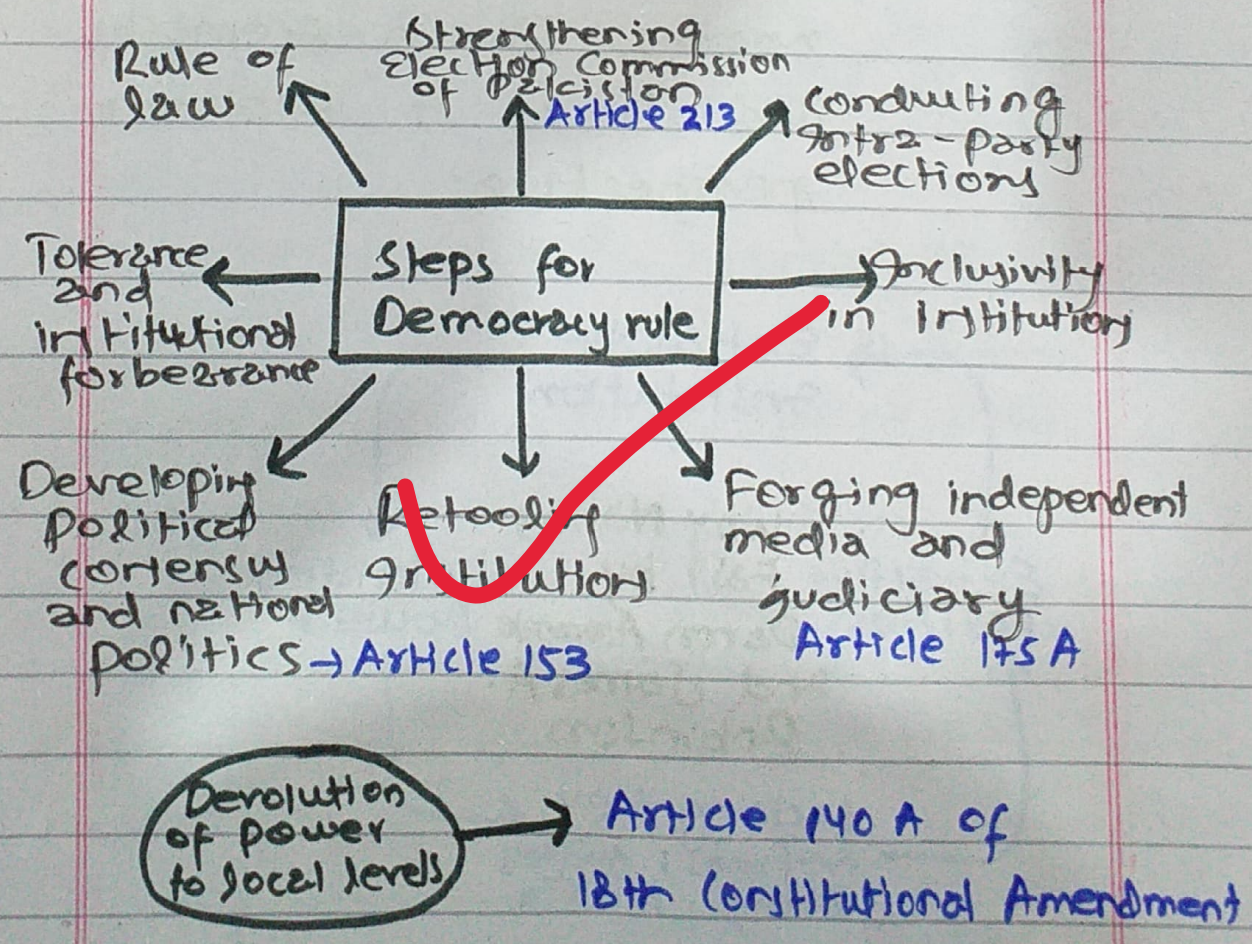 Rule of
law
Strengthening
Election Commission
of Pakistan
Article 213
Conducting
Intra-party
elections
Tolerance
and
institutional
forbearance
Steps for
Democracy rule
Inclusivity
in Institutions
Developing
political
consensus
and national
politics → Article 153
Retooling
Institutions
Forging independent
media and
judiciary
Article 175 A
Devolution
of power
to local levels
Article 140 A of
18th Constitutional Amendment